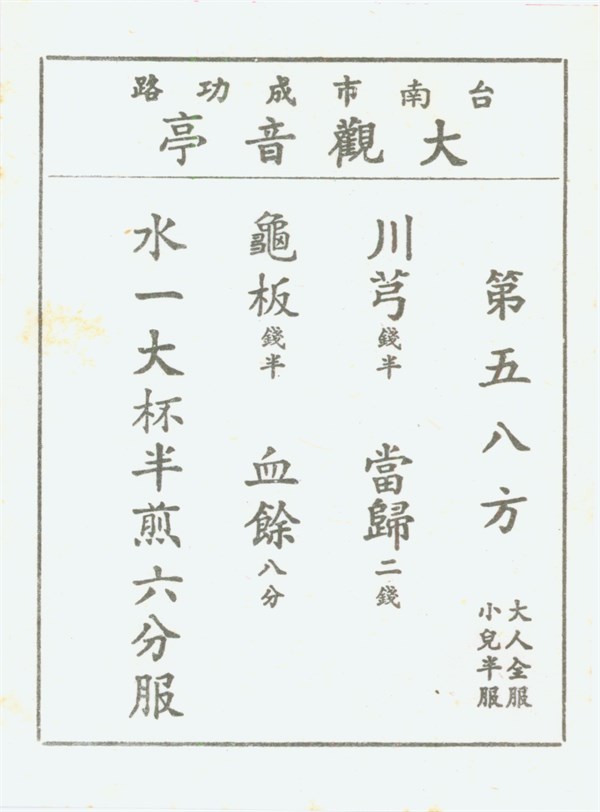 台南市成功路
大觀音亭
第五八方
大人全服
小兒半服
川芎錢半 當歸二錢
龜板錢半 血餘八分
水一大杯半煎六分服